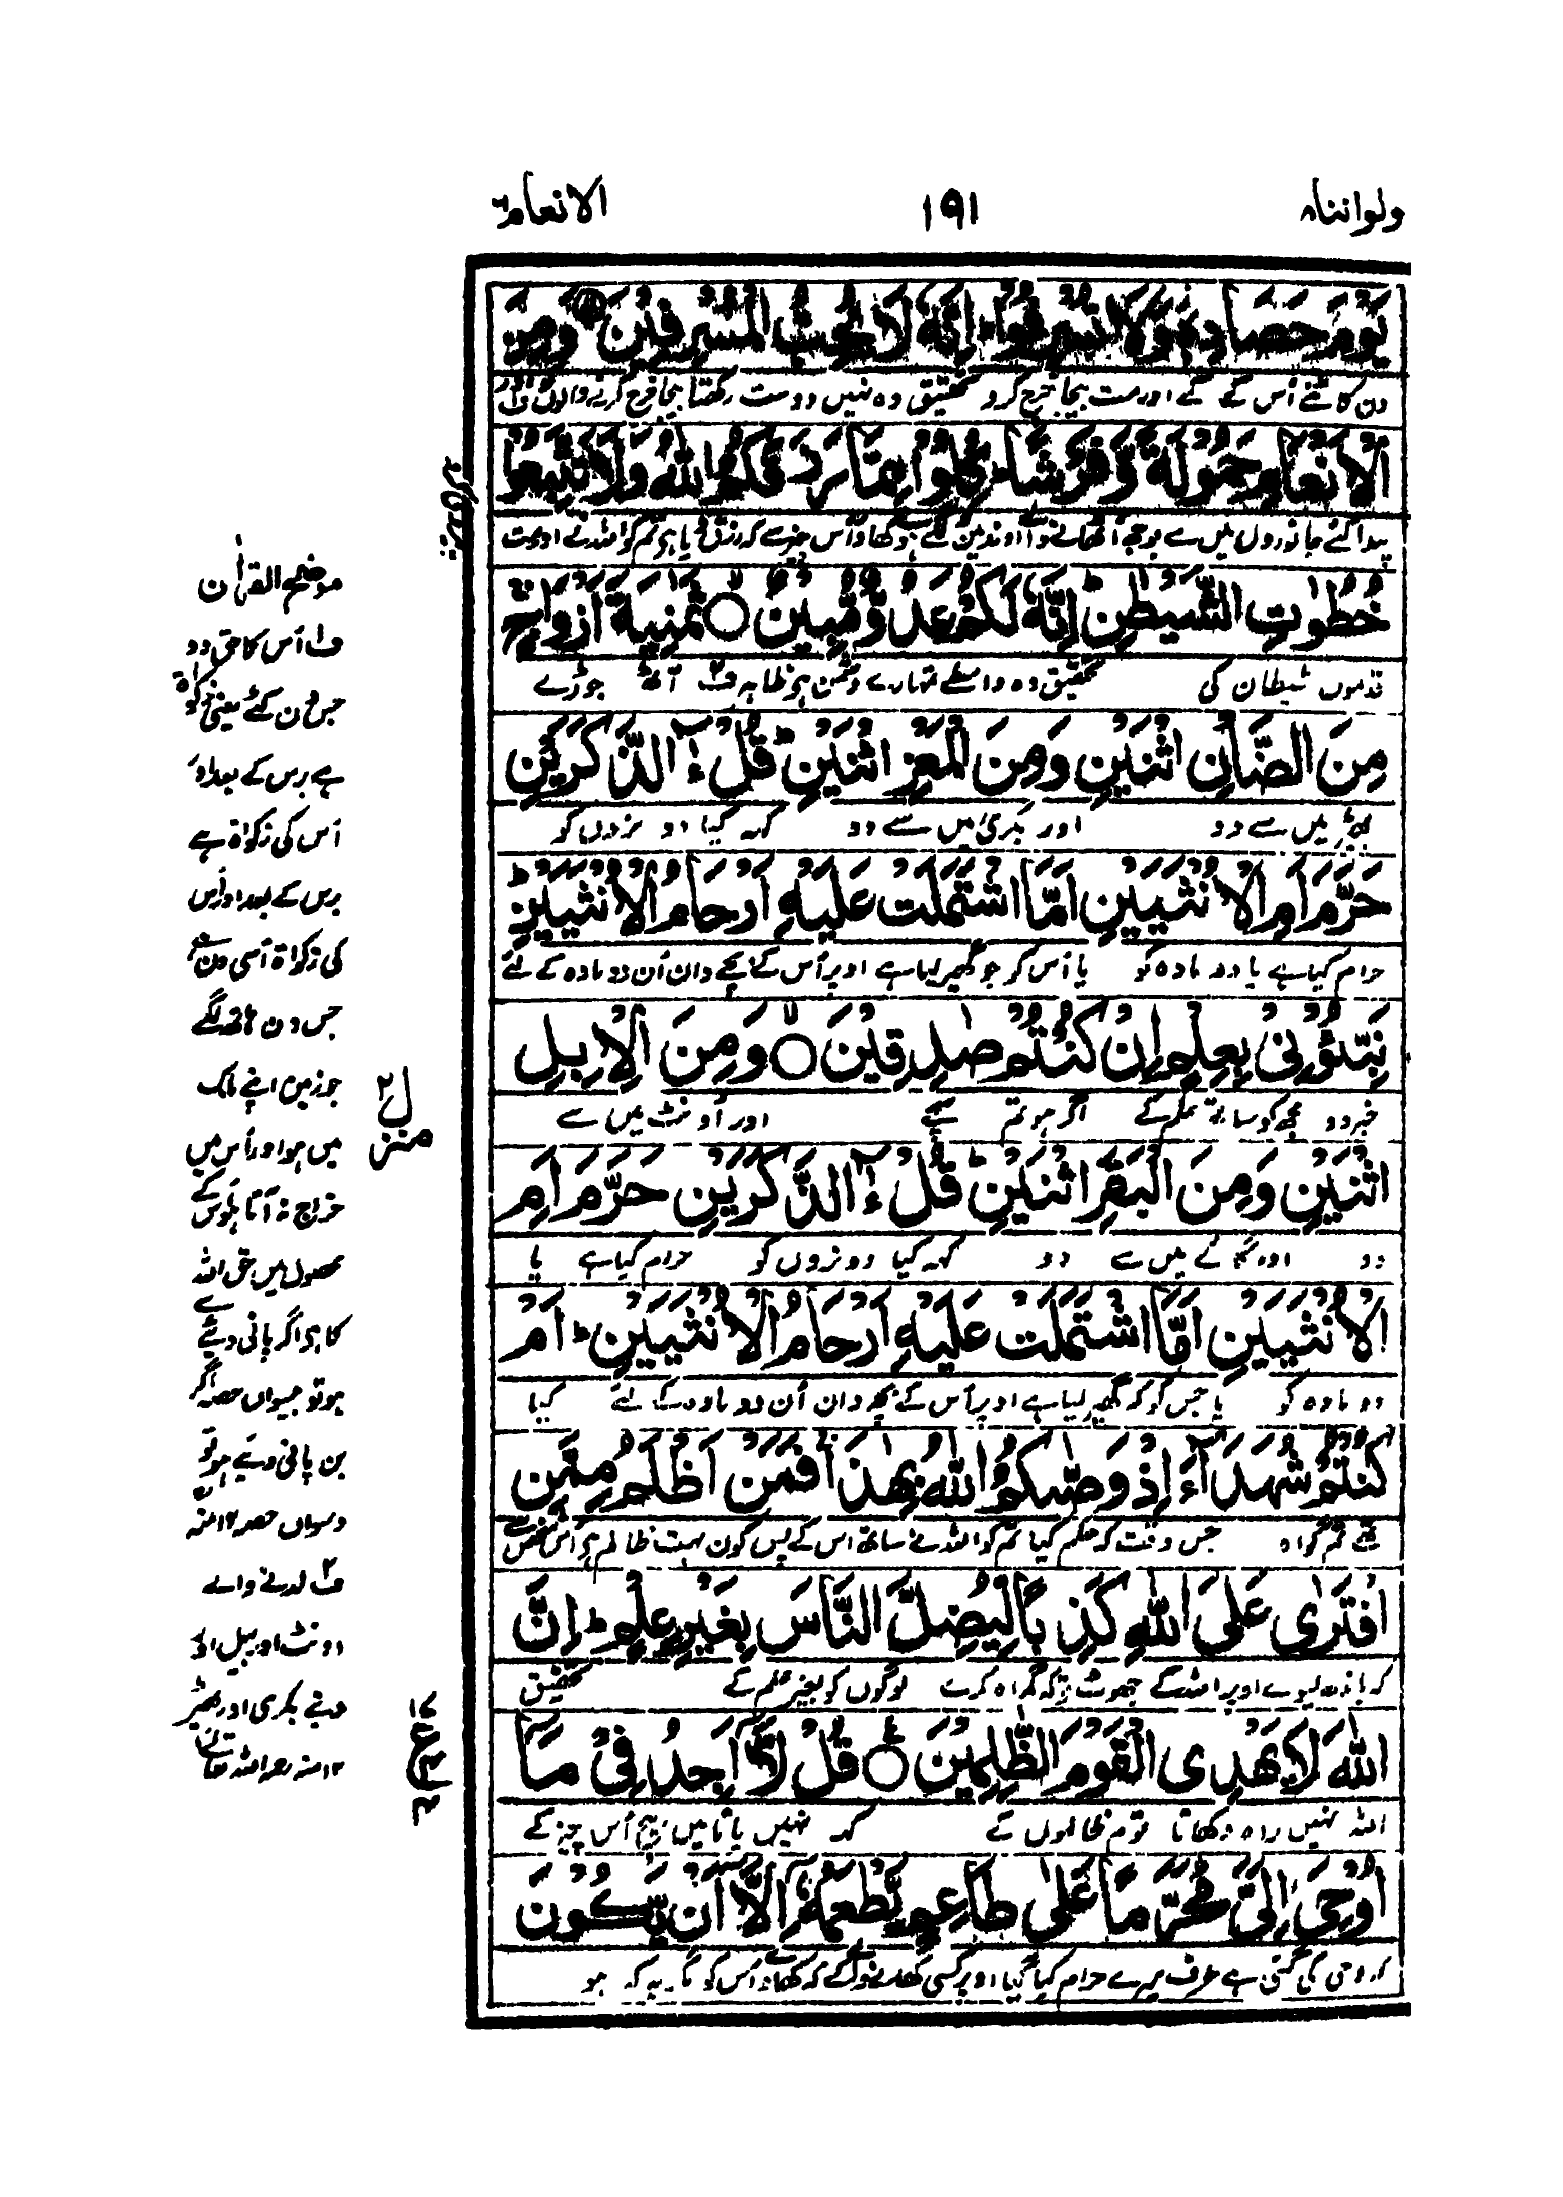 ولواننا ۸
۱۹۱
الانعام ۶
يَوْمَ حَصَادِهٖ وَلَا تُسْرِفُوْا ؕ اِنَّهٗ لَا يُحِبُّ الْمُسْرِفِيْنَ وَمِنَ
دن کاٹنے اُس کے کے اور مت بیجا خرچ کرو تحقیق وہ نہیں دوست رکھتا بیجا خرچ کرنے والوں کو
الْاَنْعَامِ حَمُوْلَةً وَّفَرْشًا ؕ كُلُوْا مِمَّا رَزَقَكُمُ اللّٰهُ وَلَا تَتَّبِعُوْا
پیدا کئے جانوروں میں سے بوجھ اُٹھانے والے اور زمین سے لگے ہوئے کھاؤ اُس چیز سے کہ رزق دیا ہے تم کو اللہ نے اور مت
خُطُوٰتِ الشَّيْطٰنِ ؕ اِنَّهٗ لَكُمْ عَدُوٌّ مُّبِيْنٌ ○ ثَمٰنِيَةَ اَزْوَاجٍ ۚ
قدموں شیطان کی تحقیق وہ واسطے تمہارے دشمن ہے ظاہر ف۲ آٹھ جوڑے
مِنَ الضَّاْنِ اثْنَيْنِ وَمِنَ الْمَعْزِ اثْنَيْنِ ؕ قُلْ ءٰٓالذَّكَرَيْنِ
بھیڑ میں سے دو اور بکری میں سے دو کہہ کیا دو نروں کو
حَرَّمَ اَمِ الْاُنْثَيَيْنِ اَمَّا اشْتَمَلَتْ عَلَيْهِ اَرْحَامُ الْاُنْثَيَيْنِ ؕ
حرام کیا ہے یا دو مادہ کو یا اُس کو جو گھیر لیا ہے اوپر اُس کے بچے دان اُن دو مادہ کے نے
نَبِّئُوْنِيْ بِعِلْمٍ اِنْ كُنْتُمْ صٰدِقِيْنَ ○ وَمِنَ الْاِبِلِ
خبر دو مجھ کو ساتھ علم کے اگر ہو تم سچے اور اُونٹ میں سے
اثْنَيْنِ وَمِنَ الْبَقَرِ اثْنَيْنِ ؕ قُلْ ءٰٓالذَّكَرَيْنِ حَرَّمَ اَمِ
دو اور گائے میں سے دو کہہ کیا دو نروں کو حرام کیا ہے یا
الْاُنْثَيَيْنِ اَمَّا اشْتَمَلَتْ عَلَيْهِ اَرْحَامُ الْاُنْثَيَيْنِ ؕ اَمْ
دو مادہ کو یا جس کو کہ گھیر لیا ہے اوپر اُس کے بچہ دان اُن دو مادہ کے نے کیا
كُنْتُمْ شُهَدَآءَ اِذْ وَصّٰىكُمُ اللّٰهُ بِهٰذَا ۚ فَمَنْ اَظْلَمُ مِمَّنِ
تھے تم گواہ جس وقت کہ حکم کیا تم کو اللہ نے ساتھ اس کے پس کون بہت ظالم ہے اُس شخص سے
افْتَرٰى عَلَى اللّٰهِ كَذِبًا لِّيُضِلَّ النَّاسَ بِغَيْرِ عِلْمٍ ؕ اِنَّ
کہ باندھ لیوے اوپر اللہ کے جھوٹ تو کہ گمراہ کرے لوگوں کو بغیر علم کے تحقیق
اللّٰهَ لَا يَهْدِى الْقَوْمَ الظّٰلِمِيْنَ ○ قُلْ لَّآ اَجِدُ فِيْ مَآ
اللہ نہیں راہ دکھاتا قوم ظالموں کے کہہ نہیں پاتا میں بیچ اُس چیز کے
اُوْحِىَ اِلَىَّ مُحَرَّمًا عَلٰى طَاعِمٍ يَّطْعَمُهٗٓ اِلَّآ اَنْ يَّكُوْنَ
کہ وحی کی گئی ہے طرف میرے حرام کیا گیا اوپر کسی کھانے والے کے کہ کھاوے اُس کو مگر یہ کہ ہو
موضح القرآن
ف۱ اُس کا حق دو
جس دن کٹے یعنی زکوٰۃ
ہے برس کے بعد اور
اُس کی زکوٰۃ ہے
برس کے بعد اور اُس
کی زکوٰۃ اُسی دن ہے
جس دن ہاتھ لگے
جو زمین اپنے ملک
میں ہو اور اُس میں
خراج نہ آتا ہو اُس کے
محصول میں حق اللہ
کا ہے اگر پانی دیئے سے
ہو تو بیسواں حصہ اگر
بن پانی دیئے ہو تو
دسواں حصہ ۱۲ منہ
ف۲ لدنے والے
اونٹ اور بیل اور
دبے بکری اور بھیڑ
۱۲ منہ رحمہ اللہ تعالیٰ
منزل ۲
ع